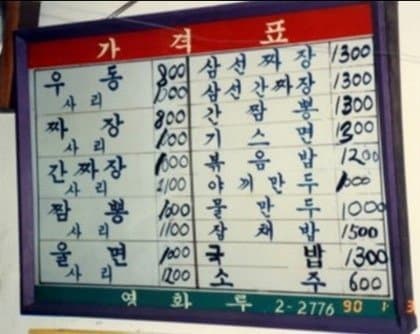 가격표
우동 800
사리 1000
짜장 800
사리 1000
간짜장 1000
사리 1100
짬뽕 1000
사리 1100
울면 1000
사리 1200
삼선짜장 1300
삼선간짜장 1300
간짬뽕 1300
기스면 1300
볶음밥 1200
야끼만두 1000
물만두 1000
잡채밥 1500
국밥 1300
소주 600
2-2776
90